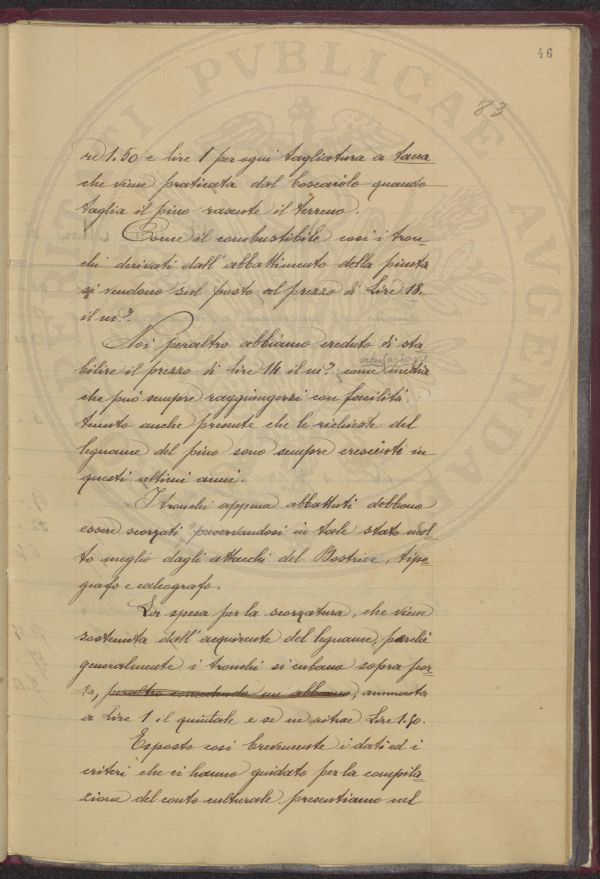 46
83
re 1.50 e lire 1 per ogni tagliatura a
che viene praticata dal boscaiolo quando
taglia il pino rasente il terreno.
Come il combustibile così i tron-
chi derivati dall'abbattimento della pineta
si vendono sul posto al prezzo di Lire 18.
il m³.
Noi peraltro abbiamo creduto di sta
bilire il prezzo di Lire 14 il m³ come media
valutazione
che può sempre raggiungersi con facilità
tenuto anche presente che le richieste del
legname del pino sono sempre crescenti in
questi ultimi anni.
I tronchi appena abbattuti debbono
essere scorzati preservandosi in tale stato mol-
to meglio dagli attacchi del Bostrice, tipo-
grafo e calcografo.
La spesa per la scorzatura, che viene
sostenuta dall'acquirente del legname, perchè
generalmente i tronchi si cubano sopra scor-
za, peraltro concedendo un abbuono, ammonta
a Lire 1 il quintale e se ne ritrae Lire 1.50.
Esposto così brevemente i dati ed i
criteri che ci hanno guidato per la compila-
zione del conto culturale presentiamo nel